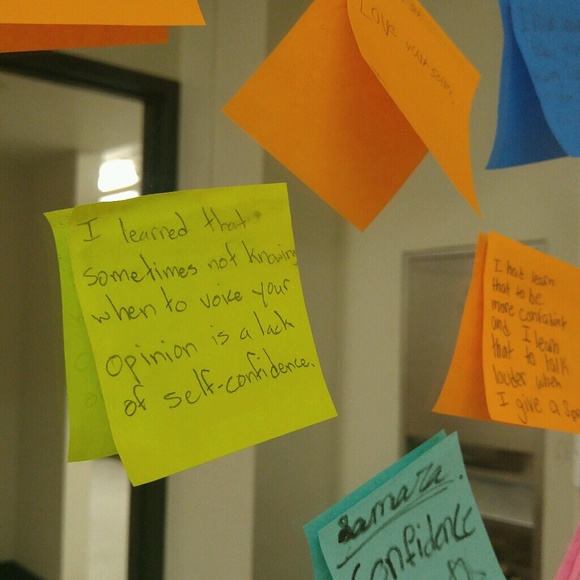 Love yourself.
I learned that
sometimes not knowing
when to voice your
opinion is a lack
of self-confidence.
I had learn
that to be
more confident
and I learn
that to talk
louder when
I give a
Samara.
Confidence